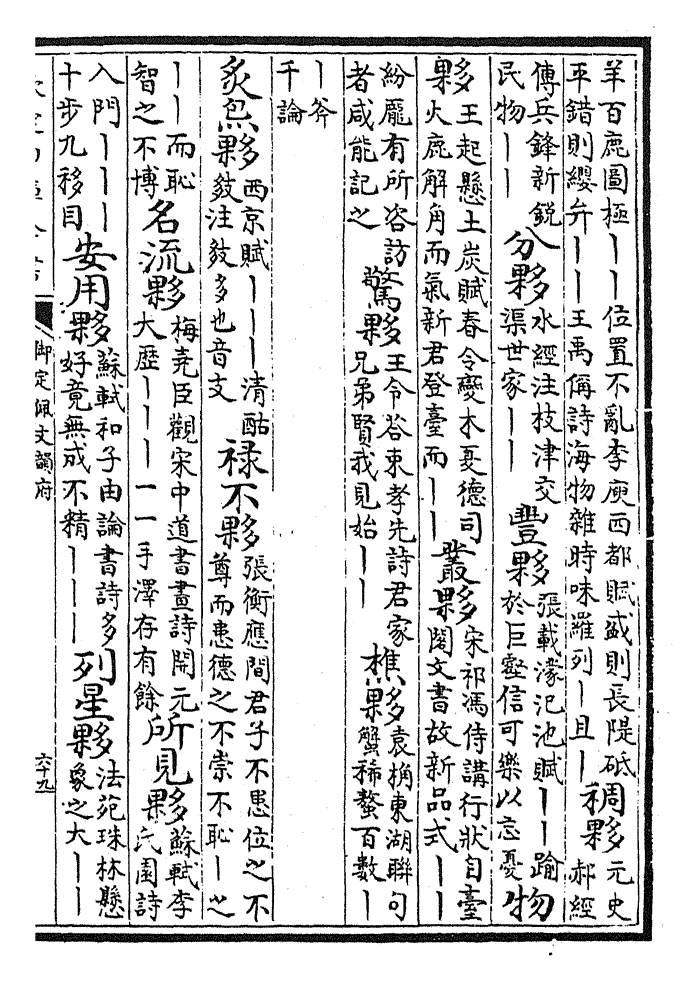 羊百鹿圖極｜｜位置不亂李庾西都賦盛則長隄砥
平錯則纓弁｜｜王禹偁詩海物雜時味羅列｜且｜
稠夥
元史
郝經
傳兵鋒新銳
民物｜｜
分夥
水經注枝津交
渠世家｜｜
豐夥
張載濛汜池賦｜｜踰
於巨壑信可樂以忘憂
物
夥
王起懸土炭賦春令變木憂德司
火鹿解角而氣新君登臺而｜｜
叢夥
宋祁馮侍講行狀自臺
閣文書故新品式｜｜
紛龐有所咨訪
者咸能記之
驚夥
王令答束孝先詩君家
兄弟賢我見始｜｜
樵夥
袁桷東湖聯句
蟹稀螯百數｜
｜斧
千論
炙炰夥
西京賦｜｜｜清酤
㪅注㪅多也音支
祿不夥
張衡應間君子不患位之不
尊而患德之不崇不恥｜之
｜｜而恥
智之不博
名流夥
梅堯臣觀宋中道書畫詩開元
大歷｜｜｜一一手澤存有餘
所見夥
蘇軾李
氏園詩
入門｜｜｜
十步九移目
安用夥
蘇軾和子由論書詩多
好竟無成不精｜｜｜
列星夥
法苑珠林懸
象之大｜｜
御定佩文韻府
六十九